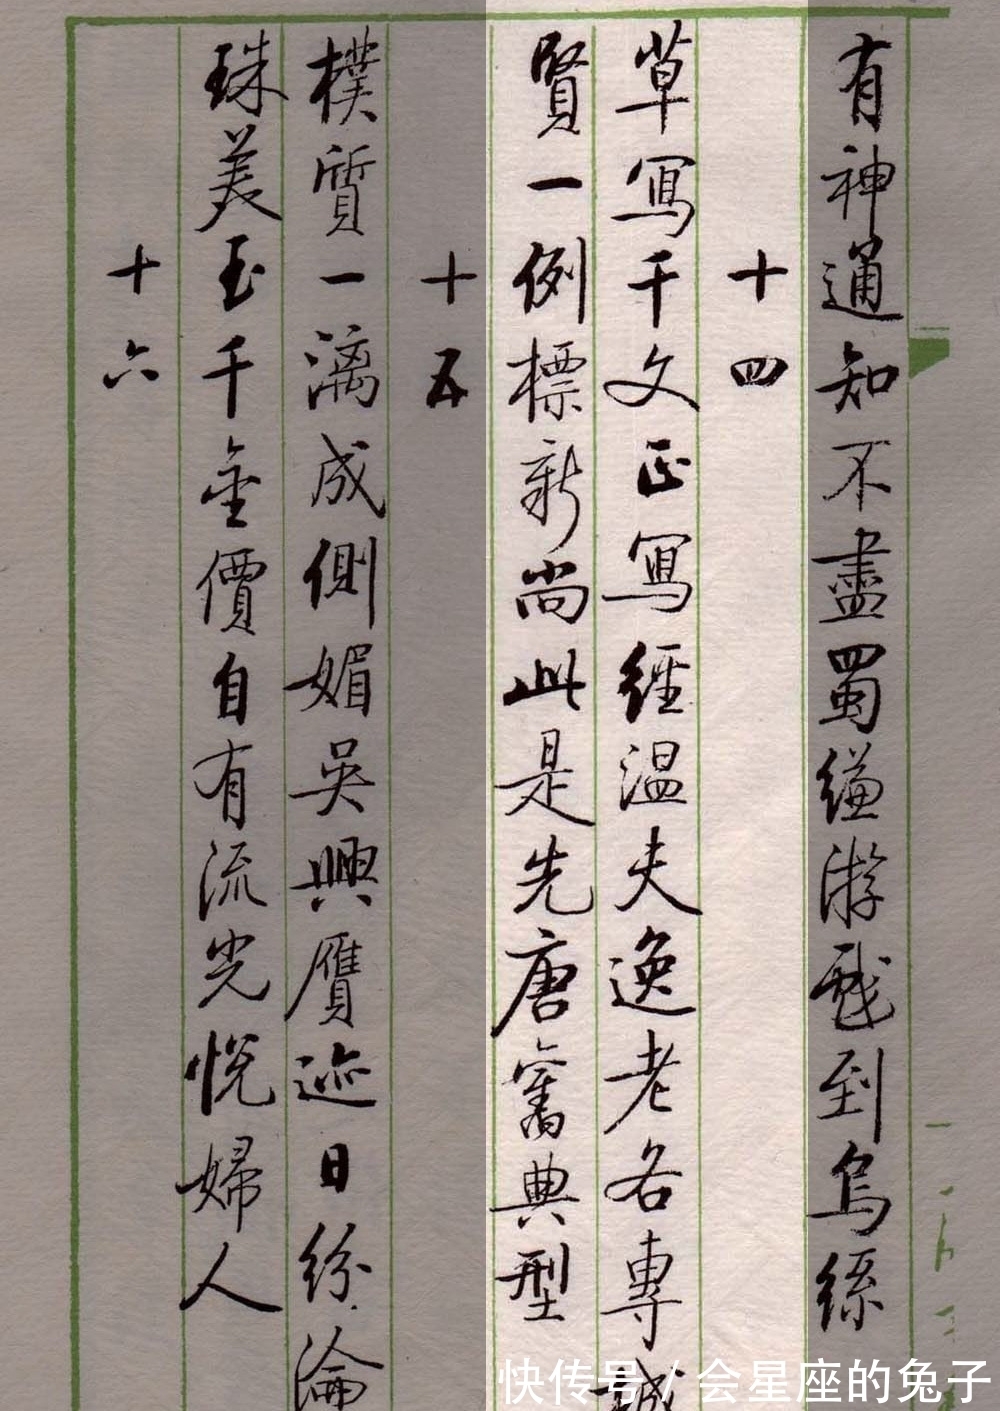 有神通知不盡蜀縑游戲到烏絲
十四
草寫千文正寫經温夫逸老各專誠
賢一例標新尚此是先唐舊典型
十五
樸質一漓成側媚吳興贋迹日紛淪
珠美玉千金價自有流光悦婦人
十六
快传号 / 会星座的兔子